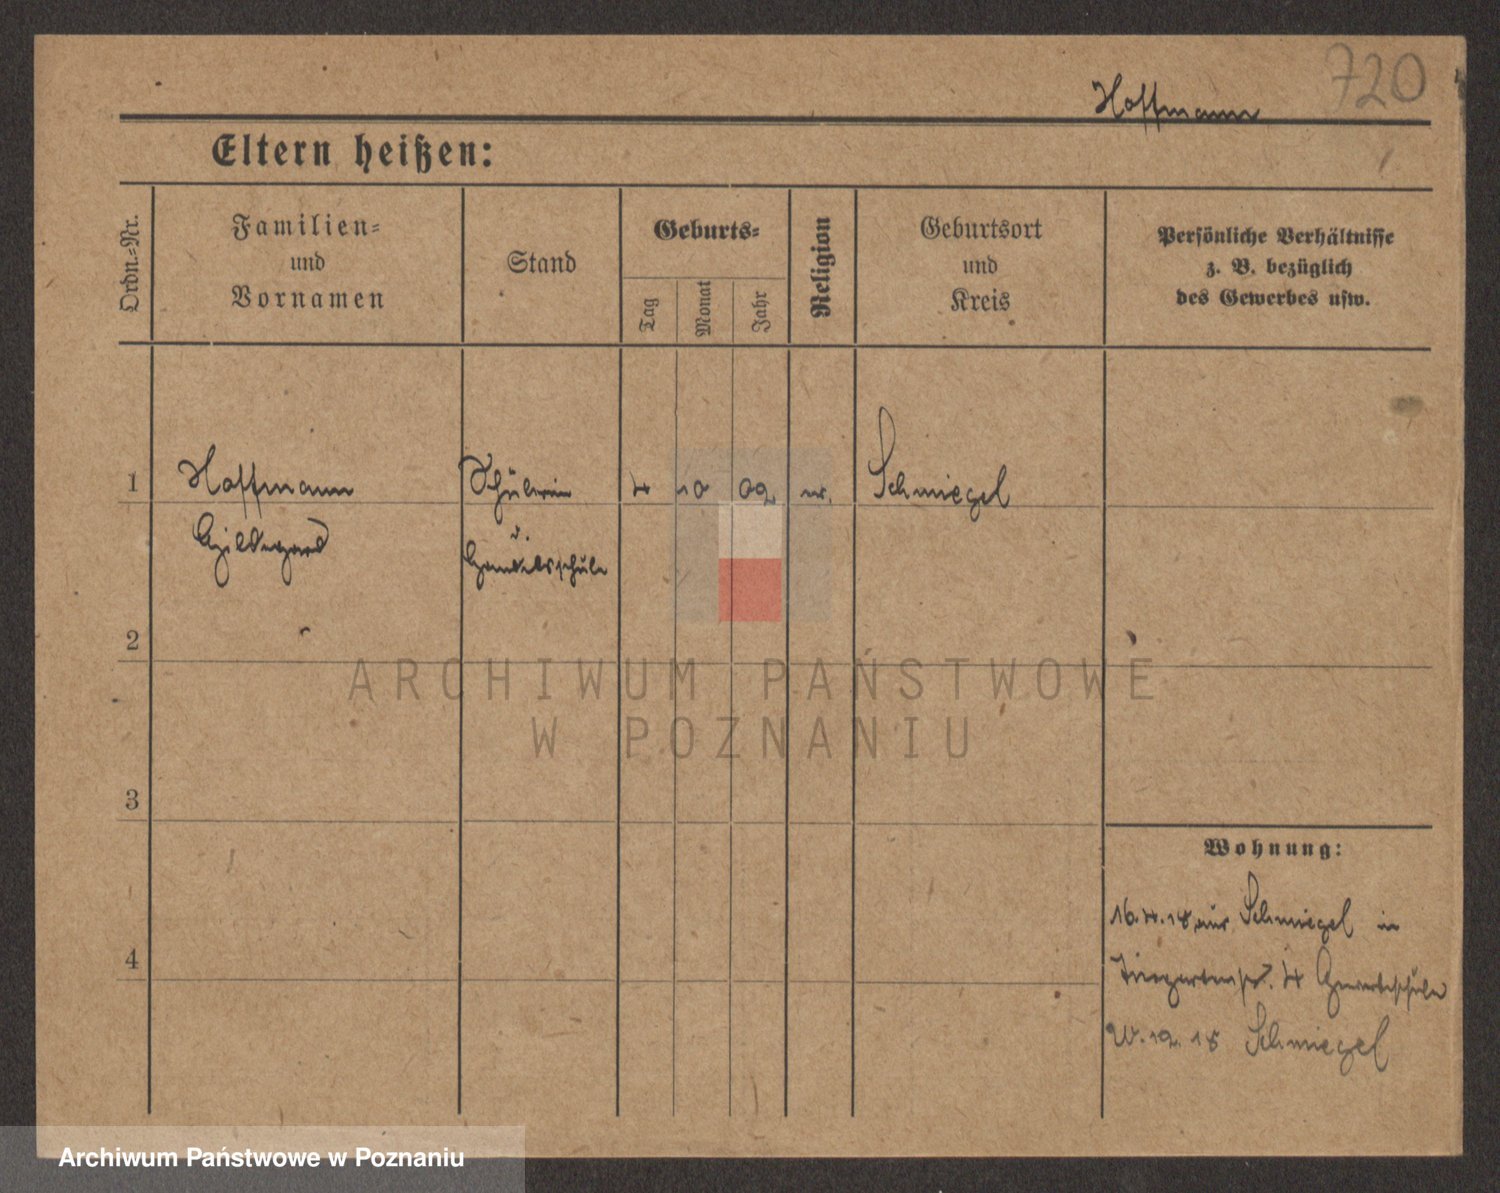 Hoffmann 720
Eltern heißen:
Ordn.-Nr.
Familien-
und
Vornamen
Stand
Geburts-
Tag
Monat
Jahr
Religion
Geburtsort
und
Kreis
Persönliche Verhältnisse
z. B. bezüglich
des Gewerbes usw.
1 Hoffmann Schülerin 4 10 02 ev. Schmiegel
Hildegard
d.
Handelsschule
2
ARCHIWUM PAŃSTWOWE
W POZNANIU
3
Wohnung:
16.4.18 aus Schmiegel in
4
Tiergartenstr. 4 Gewerbeschule
12.18 Schmiegel
Archiwum Państwowe w Poznaniu